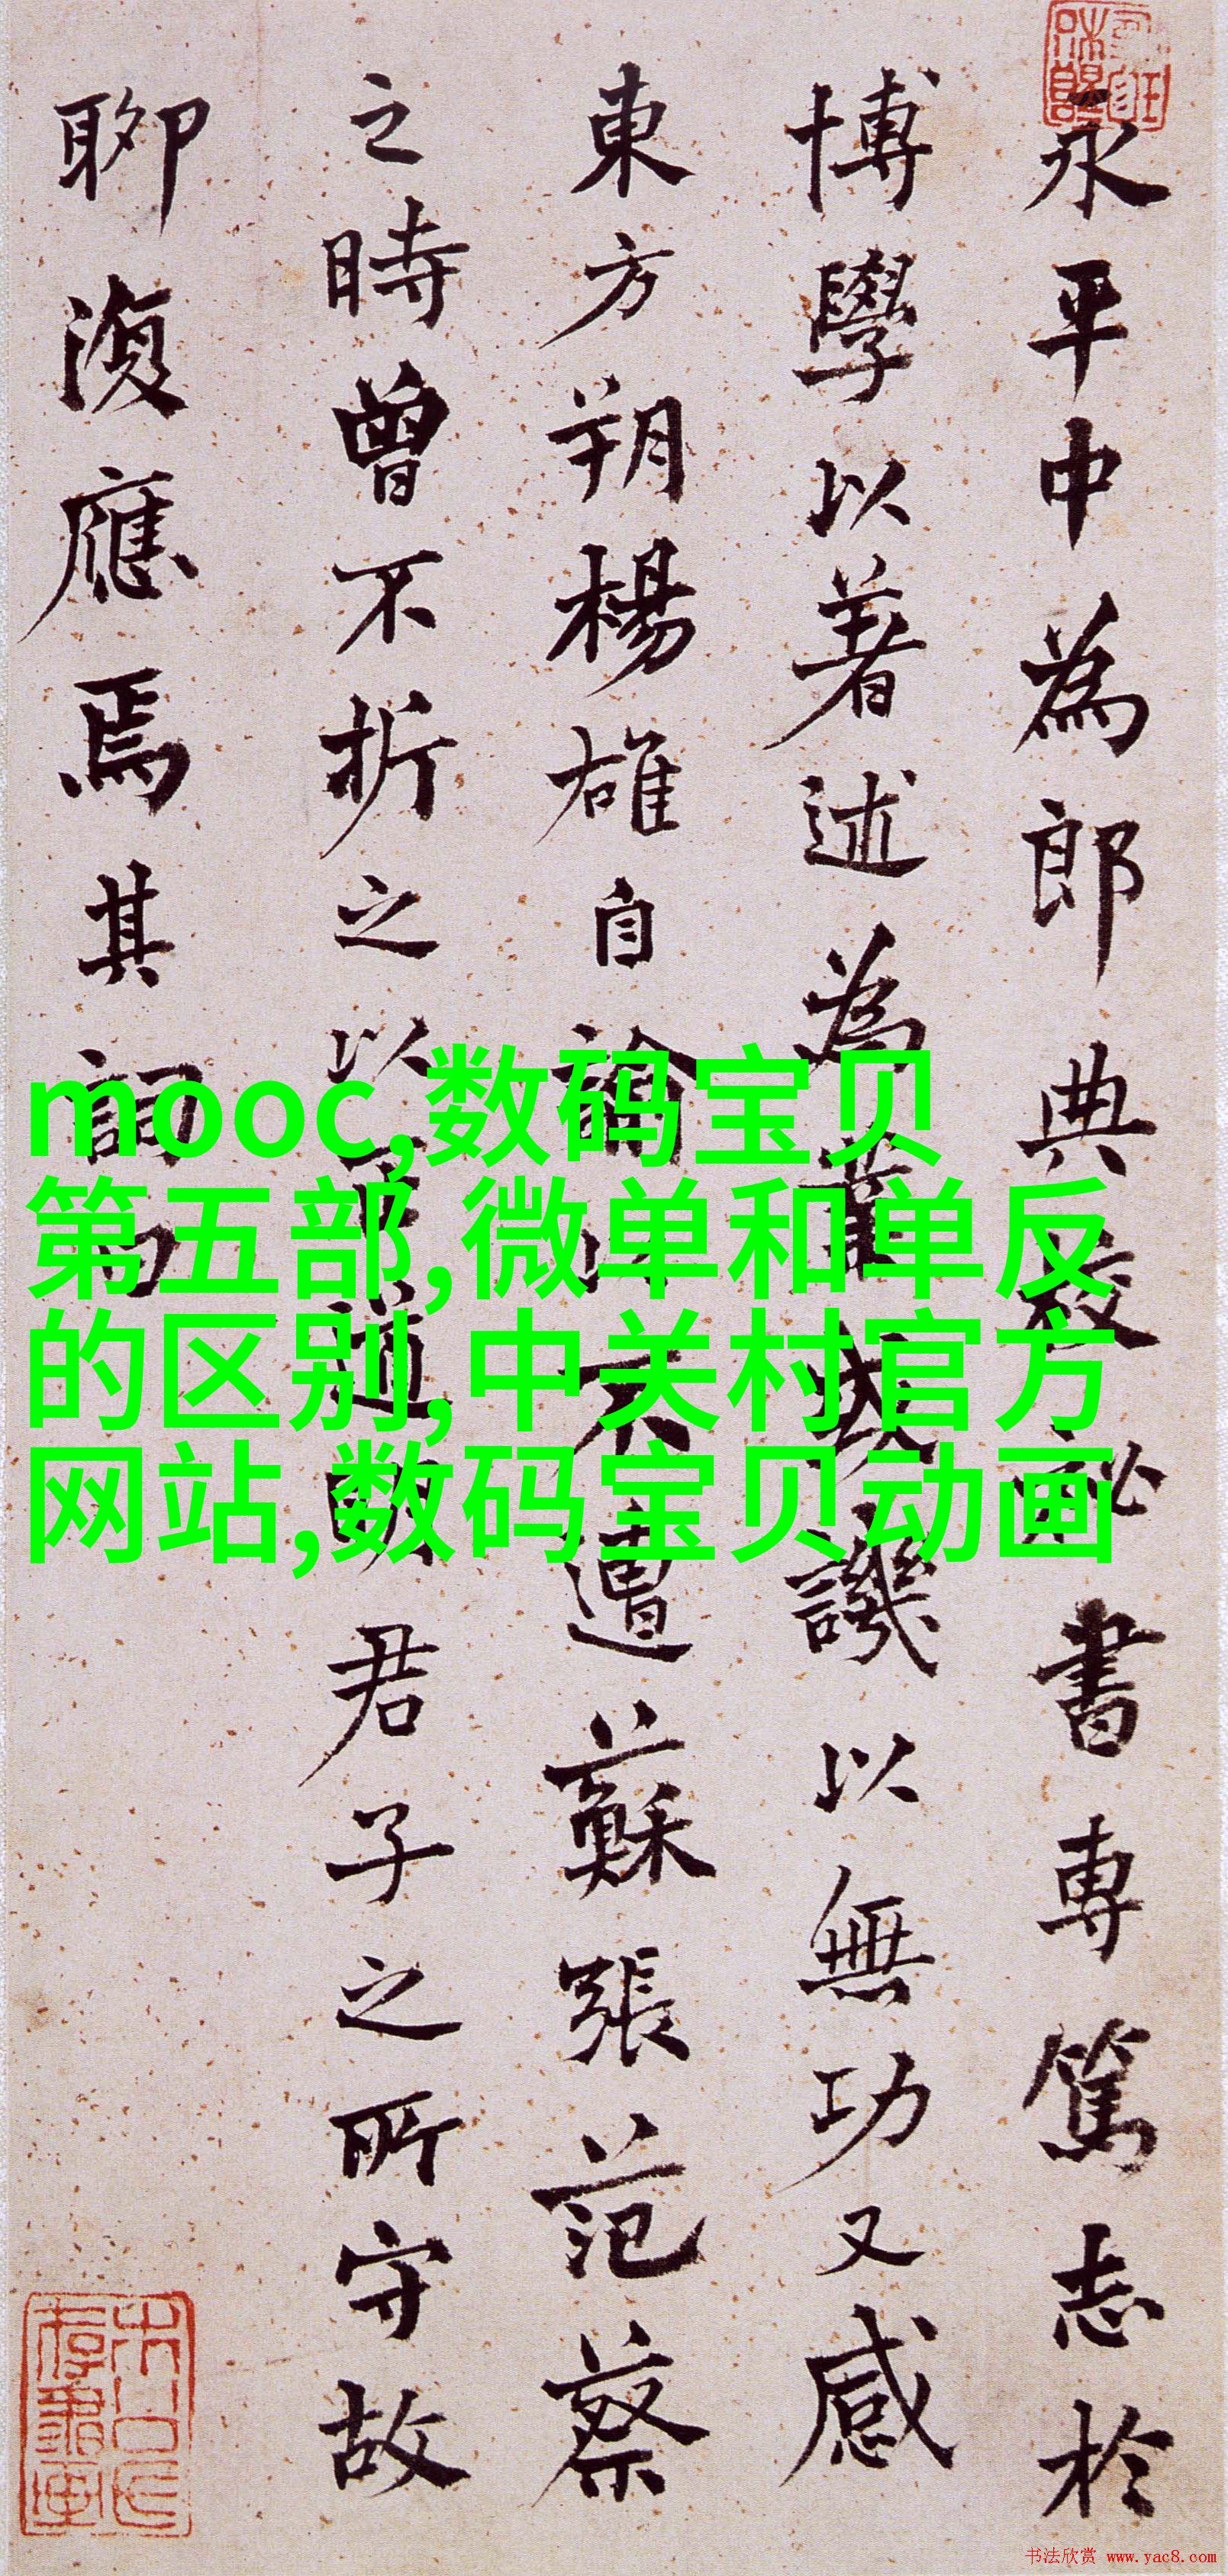 永平中為郎典校祕書専篤志於
博學以著述為業或譏以無功又感
東方朔楊雄自論以不遭蘇張范蔡
之時曾不折之以正道明君子之所守故
聊復應焉其詞曰
mooc,数码宝贝
第五部,微单和单反
的区别,中关村官方
网站,数码宝贝动画
书法欣赏 www.yac8.com